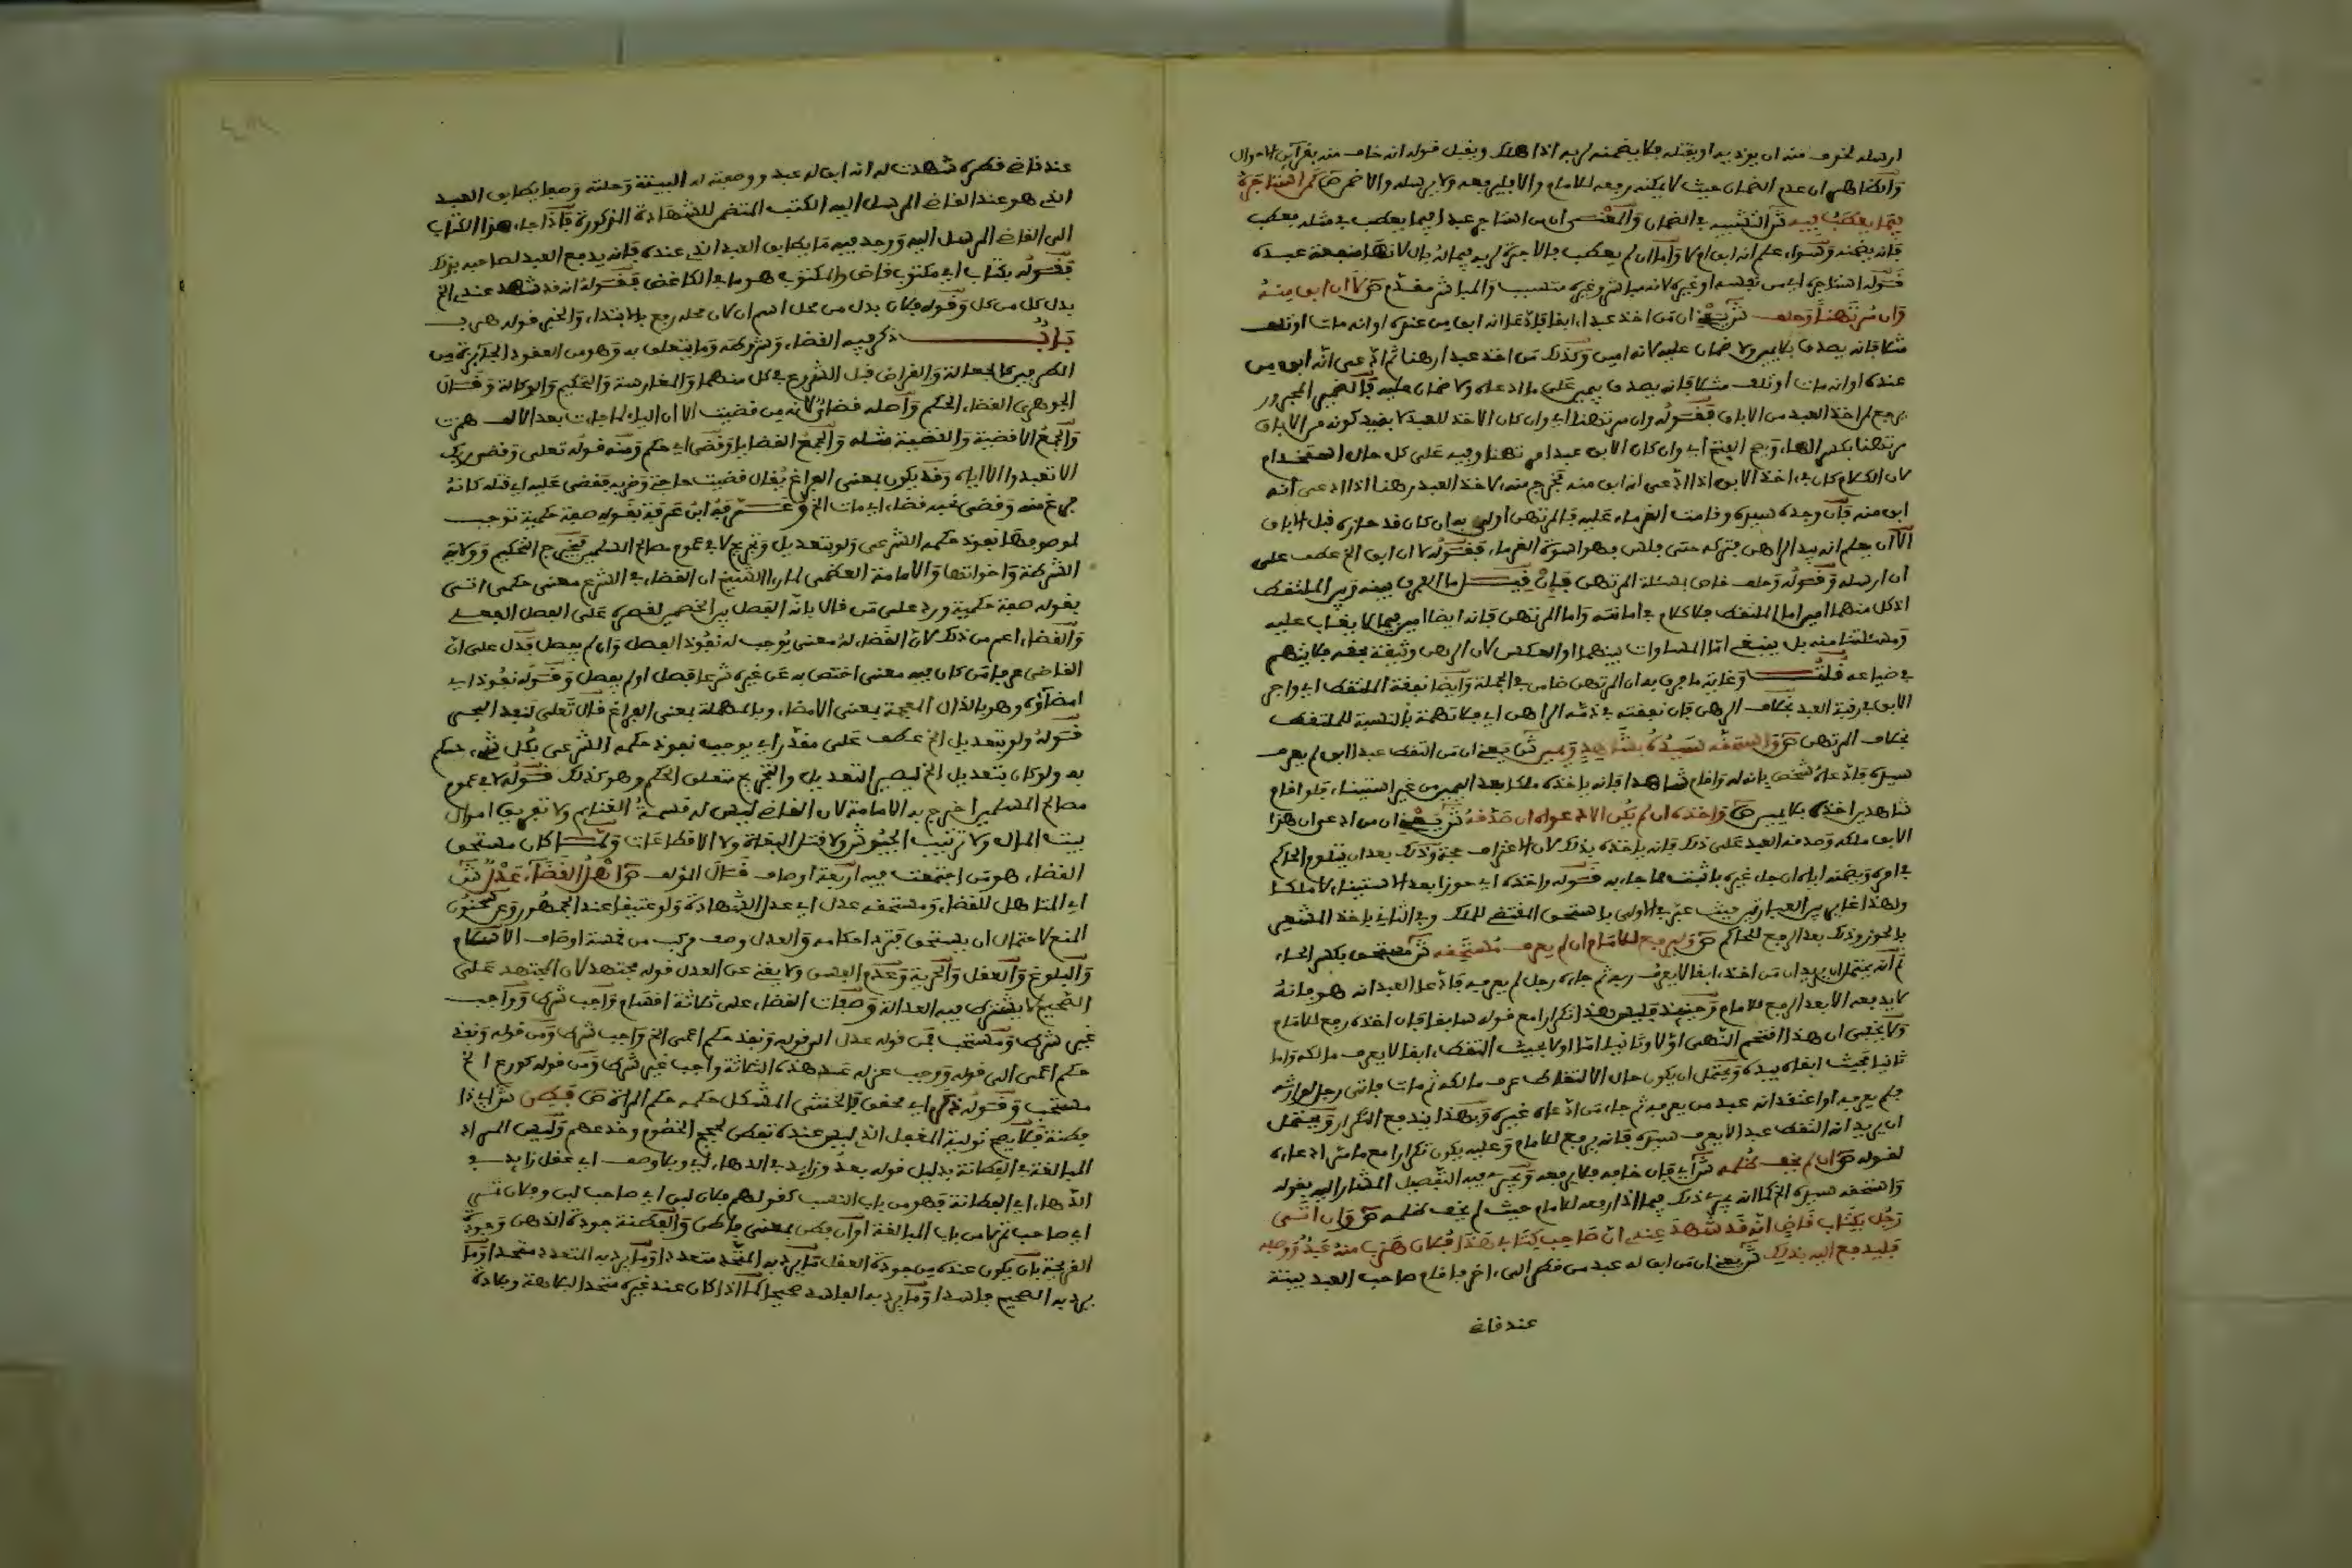 ارسله لخوف منه ان يوذيه او يقتله فلا يضمنه لربه اذا هلك ويقبل قوله انه خاف منه بقرآين الاحوال
والظاهر ان عدم الضمان حيث لا يمكنه رفعه للامام والا فليرفعه ولا يرسله والا ضمن ص كمن استاجره
فيما يعطب فيه ش التشبيه في الضمان والمعنى ان من استاجر عبدا فيما يعطب في مثله فعطب
فانه يضمنه وسواء علم انه ابق ام لا واما ان لم يعطب فالاجرة لربه لانها منفعة عبده
قوله استاجره اي من نفسه او غيره لانه مباشر وغيره متسبب والمباشر مقدم ص لا ان ابق منه
وان مرتهنا وحلف ش يعني ان من اخذ عبدا ابقا فادعى انه ابق من عنده او انه مات او تلف
فانه يصدق بلا يمين ولا ضمان عليه لانه امين وكذلك من اخذ عبدا رهنا ثم ادعى انه ابق من
عنده او انه مات او تلف فانه يصدق بيمين على ما ادعاه ولا ضمان عليه فالضمير المجرور
يرجع لمن اخذ العبد من الاباق فقوله وان مرتهنا اي وان كان الاخذ للعبد لا بقيد كونه من الاباق
مرتهنا بكسر الهاء ويصح الفتح اي وان كان الابق عبدا مرتهنا وفيه على كل حال استخدام
لان الكلام كان في اخذ الابق اذا ادعى انه ابق منه فخرج منه لاخذ العبد رهنا اذا ادعى انه
ابق منه فان وجده سيده وقامت الغرماء عليه فالمرتهن اولى به ان كان قد حازه قبل الاباق
الا ان يعلم انه بيد الراهن فتركه حتى فلس فهو اسوة الغرماء فقوله لا ان ابق الخ عطف على
ان ارسله وقوله وحلف خاص بمسئلة المرتهن فان قيل ما الفرق بينه وبين الملتقط
اذ كل منهما امين اما الملتقط فلا كلام في امانته واما المرتهن فانه ايضا امين فيما لا يغاب عليه
ومسئلتنا منه بل ينبغي اما المساوات بينهما او العكس لان الرهن وثيقة بحقه فلا يتهم
في ضياعه قلت وغاية ما فرق به ان المرتهن ضامن في الجملة وايضا نفقة الملتقط اي واجر
الابق في رقبة العبد بخلاف الرهن فان نفقته في ذمة الراهن اي فلا تهمة بالنسبة للملتقط
بخلاف المرتهن ص واستحقه سيده بشاهد ويمين ش يعني ان من التقط عبدا ابق لم يعرف
سيده فادعاه شخص بانه له واقام شاهدا فانه ياخذه ملكا بعد اليمين من غير استيناء فلو اقام
شاهدين اخذه بلا يمين ص واخذه ان لم يكن الا دعواه ان صدقه ش يعني ان من ادعى ان هذا
الابق ملكه وصدقه العبد على ذلك فانه ياخذه بذلك لان الاعتراف حجة وذلك بعد ان يتلوم الحاكم
في امره ويضمنه اياه ان جاء غيره باثبت مما جاء به قوله واخذه اي حوزا بعد الاستيناء لا ملكا
ولهذا غاير بين العبارتين حيث عبر في الاولى باستحق المقتضي للملك وفي الثاني باخذ المشعر
بالحوز وذلك بعد الرفع للحاكم ص وليرفع للامام ان لم يعرف مستحقه ش مستحق بكسر الحاء
ثم انه يحتمل ان يريد ان من اخذ ابقا لا يعرف ربه ثم جاءه رجل لم يعرفه فادعا العبد انه هو فانه
لا يدفعه الا بعد الرفع للامام وحينئذ فليس هذا تكرارا مع قوله سابقا فان اخذه رفع للامام
ولا يخفى ان هذا الفهم الذهن اولا وثانيا اما اولا فحيث التقط ابقا لا يعرف مالكه واما
ثانيا فحيث ابقاه بيده ويحتمل ان يكون حال الالتقاط عرف مالكه ثم مات فاتى رجل لوارثه
فلم يعرفه او اعتقد انه عبد من يعرفه ثم جاء من ادعاه غيره وبهذا يندفع التكرار ويحتمل
ان يريد انه التقط عبدا لا يعرف سيده فانه يرفع للامام وعليه يكون تكرارا مع ما ادعاه
لقوله ص ان لم يخف ظلمه ش اي فان خافه فلا يرفعه ويجري فيه التفصيل المشار اليه بقوله
واستحقه سيده الخ كما انه يجري ذلك فيما اذا رفعه للامام حيث لم يخف ظلمه ص وان اتى
رجل بكتاب قاض انه قد شهد عندي ان صاحب كتابي هذا فلان هرب منه عبد ووصفه
فليدفع اليه بذلك ش يعني ان من ابق له عبد من قطر الى اخر فاقام صاحب العبد بينة
عند قاض
عند قاضي قطره شهدت له انه ابق له عبد ووصفته له البينة وحلته وصفا يطابق العبد
الذي هو عند القاضي المرسل اليه الكتب المتضمن للشهادة المذكورة فاذا جاء هذا الكتاب
الى القاضي المرسل اليه ووجد فيه ما يطابق العبد الذي عنده فانه يدفع العبد لصاحبه بذلك
فقوله بكتاب اي مكتوب قاض والمكتوب هو ما في الكاغض فقوله انه قد شهد عندي الخ
بدل كل من كل وقوله فلان بدل من محل اسم ان لان محله رفع بالابتداء والخبر قوله هرب
باب ذكر فيه القضاء وشروطه وما يتعلق به وهو من العقود الجائزة من
الطرفين كالجعالة والقراض قبل الشروع في كل منهما والمغارسة والتحكيم والوكالة وقال
الجوهري القضاء الحكم واصله قضاي لانه من قضيت الا ان الياء لما جات بعد الالف همزت
والجمع الاقضية والقضية مثله والجمع القضايا وقضى اي حكم ومنه قوله تعلى وقضى ربك
الا تعبدوا الا اياه وقد يكون بمعنى الفراغ يقال قضيت حاجة وضربه فقضى عليه اي قتله كانه
فرغ منه وقضى نحبه قضاء اي مات الخ وعرفه ابن عرفة بقوله صفة حكمية توجب
لموصوفها نفوذ حكمه الشرعي ولو بتعديل وتجريح لا في عموم مصالح المسلمين فيخرج التحكيم وولاية
الشرطة واخواتها والامامة العظمى لما راى الشيخ ان القضاء في الشرع معنى حكمي اتى
بقوله صفة حكمية ورد على من قال بانه الفصل بين الخصمين لقصره على الفصل الفعلي
والقضاء اعم من ذلك لان القضاء له معنى يوجب له نفوذ الفصل وان لم يفصل فدل على ان
القاضي عرفا من كان فيه معنى اختص به عن غيره شرعا فصل او لم يفصل وقوله نفوذ اي
امضاؤه وهو بالذال المعجمة بمعنى الامضاء وبالمهملة بمعنى الفراغ قال تعلى لنفد البحر
قوله ولو بتعديل الخ عطف على مقدر اي يوجب نفوذ حكمه الشرعي بكل شيء حكم
به ولو كان بتعديل الخ ليصير التعديل والتجريح متعلق الحكم وهو كذلك قوله لا في عموم
مصالح المسلمين اخرج به الامامة لان القاضي ليس له قسمة الغنايم ولا تفريق اموال
بيت المال ولا ترتيب الجيوش ولا قتل البغاة ولا الاقطاعات ولما كان مستحق
القضاء هو من اجتمعت فيه اربعة اوصاف قال المؤلف ص اهل القضاء عدل ش
اي المتاهل للقضاء ومستحقه عدل اي عدل الشهادة ولو عتيقا عند الجمهور وعن سحنون
المنع لاحتمال ان يستحق فترد احكامه والعدل وصف مركب من خمسة اوصاف الاسلام
والبلوغ والعقل والحرية وعدم الفسق ولا يغني عن العدل قوله مجتهد لان المجتهد على
الصحيح لا يشترط فيه العدالة وصفات القضاء على ثلاثة اقسام واجب شرط وواجب
غير شرط ومستحب فمن قوله عدل الى قوله ونفذ حكم اعمى الخ واجب شرط ومن قوله ونفذ
حكم اعمى الى قوله ووجب عزله عند هذه الثلاثة واجب غير شرط ومن قوله كورع الخ
مستحب وقوله ذكر اي محقق فالخنثى المشكل حكمه حكم المراة ص فطن ش اي ذا
فطنة فلا يصح تولية المغفل الذي ليس عنده تفطن لحجج الخصوم وخدعهم وليس المراد
المبالغة في الفطانة بدليل قوله بعد وزايد في الدهاء اي وبلا وصف اي عقل زايد في
الدهاء اي الفطانة فهو من باب النسب كقولهم فلان لبن اي صاحب لبن وفلان تمر
اي صاحب تمر لا من باب المبالغة او ان فطن بمعنى فاطن والفطنة جودة الذهن وجودة
القريحة بان يكون عنده من جودة العقل ما يرد به المتحد متعددا وما يرد به المتعدد متحدا وما
يرد به الصحيح فاسدا وما يرد به الفاسد صحيحا كما اذا كان عند غيره متحد البلاهة وبلادة